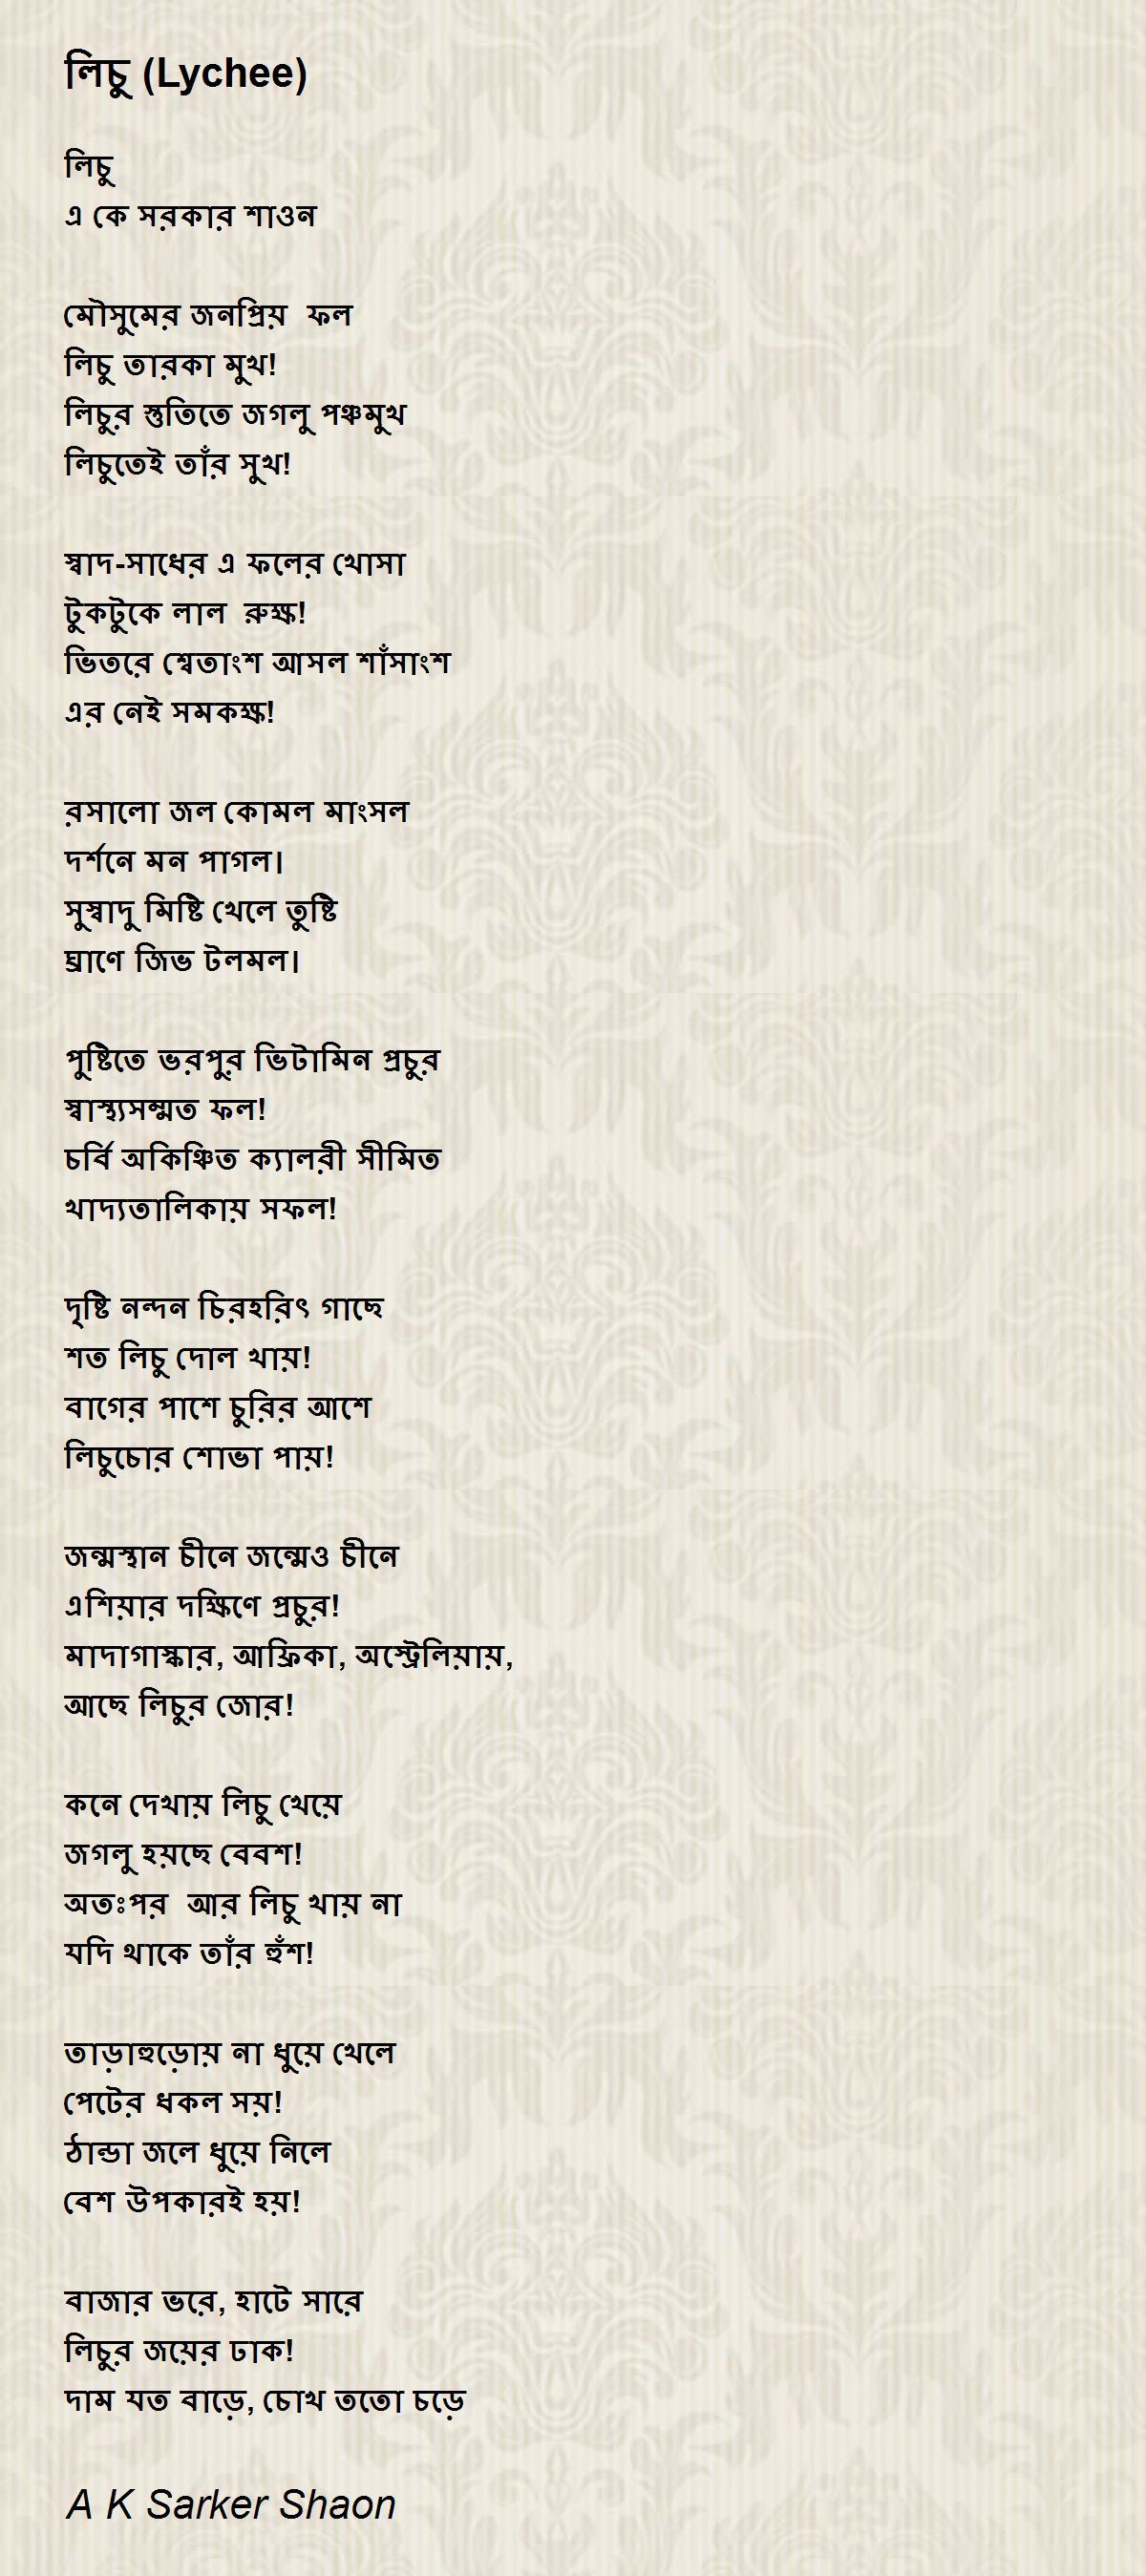 লিচু (Lychee)
লিচু
এ কে সরকার শাওন
মৌসুমের জনপ্রিয় ফল
লিচু তারকা মুখ!
লিচুর স্তুতিতে জগলু পঞ্চমুখ
লিচুতেই তাঁর সুখ!
স্বাদ-সাধের এ ফলের খোসা
টুকটুকে লাল রুক্ষ!
ভিতরে শ্বেতাংশ আসল শাঁসাংশ
এর নেই সমকক্ষ!
রসালো জল কোমল মাংসল
দর্শনে মন পাগল।
সুস্বাদু মিষ্টি খেলে তুষ্টি
ঘ্রাণে জিভ টলমল।
পুষ্টিতে ভরপুর ভিটামিন প্রচুর
স্বাস্থ্যসম্মত ফল!
চর্বি অকিঞ্চিত ক্যালরী সীমিত
খাদ্যতালিকায় সফল!
দৃষ্টি নন্দন চিরহরিৎ গাছে
শত লিচু দোল খায়!
বাগের পাশে চুরির আশে
লিচুচোর শোভা পায়!
জন্মস্থান চীনে জন্মেও চীনে
এশিয়ার দক্ষিণে প্রচুর!
মাদাগাস্কার, আফ্রিকা, অস্ট্রেলিয়ায়,
আছে লিচুর জোর!
কনে দেখায় লিচু খেয়ে
জগলু হয়ছে বেবশ!
অতঃপর আর লিচু খায় না
যদি থাকে তাঁর হুঁশ!
তাড়াহুড়োয় না ধুয়ে খেলে
পেটের ধকল সয়!
ঠান্ডা জলে ধুয়ে নিলে
বেশ উপকারই হয়!
বাজার ভরে, হাটে সারে
লিচুর জয়ের ঢাক!
দাম যত বাড়ে, চোখ ততো চড়ে
A K Sarker Shaon